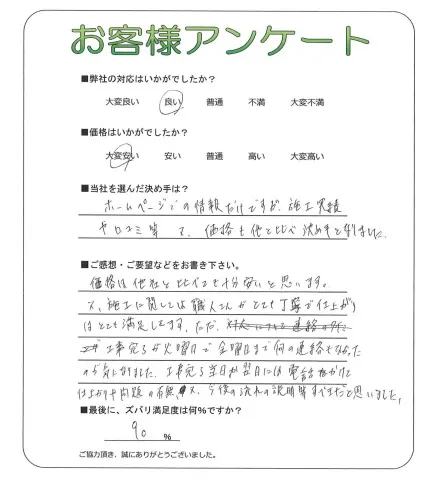 お客様アンケート
■弊社の対応はいかがでしたか?
大変良い 良い 普通 不満 大変不満
■価格はいかがでしたか?
大変安い 安い 普通 高い 大変高い
■当社を選んだ決め手は?
ホームページでの情報だけですが、施工実績
やロコミ等で、価格も他と比べ決め手となりました。
■ご感想・ご要望などをお書き下さい。
価格は他社と比べても十分安いと思います。
又、施工に関しては職人さんがとても丁寧で仕上がり
はとても満足してます。ただ、
工事完了が火曜日で金曜日まで何の連絡もなかった
のが気になりました。工事完了当日か翌日には電話をかけて
仕上がりや問題の有無、又、今後の流れの説明等すべきだと思いました。
■最後に、ズバリ満足度は何%ですか?
90 %
ご協力頂き、誠にありがとうございました。